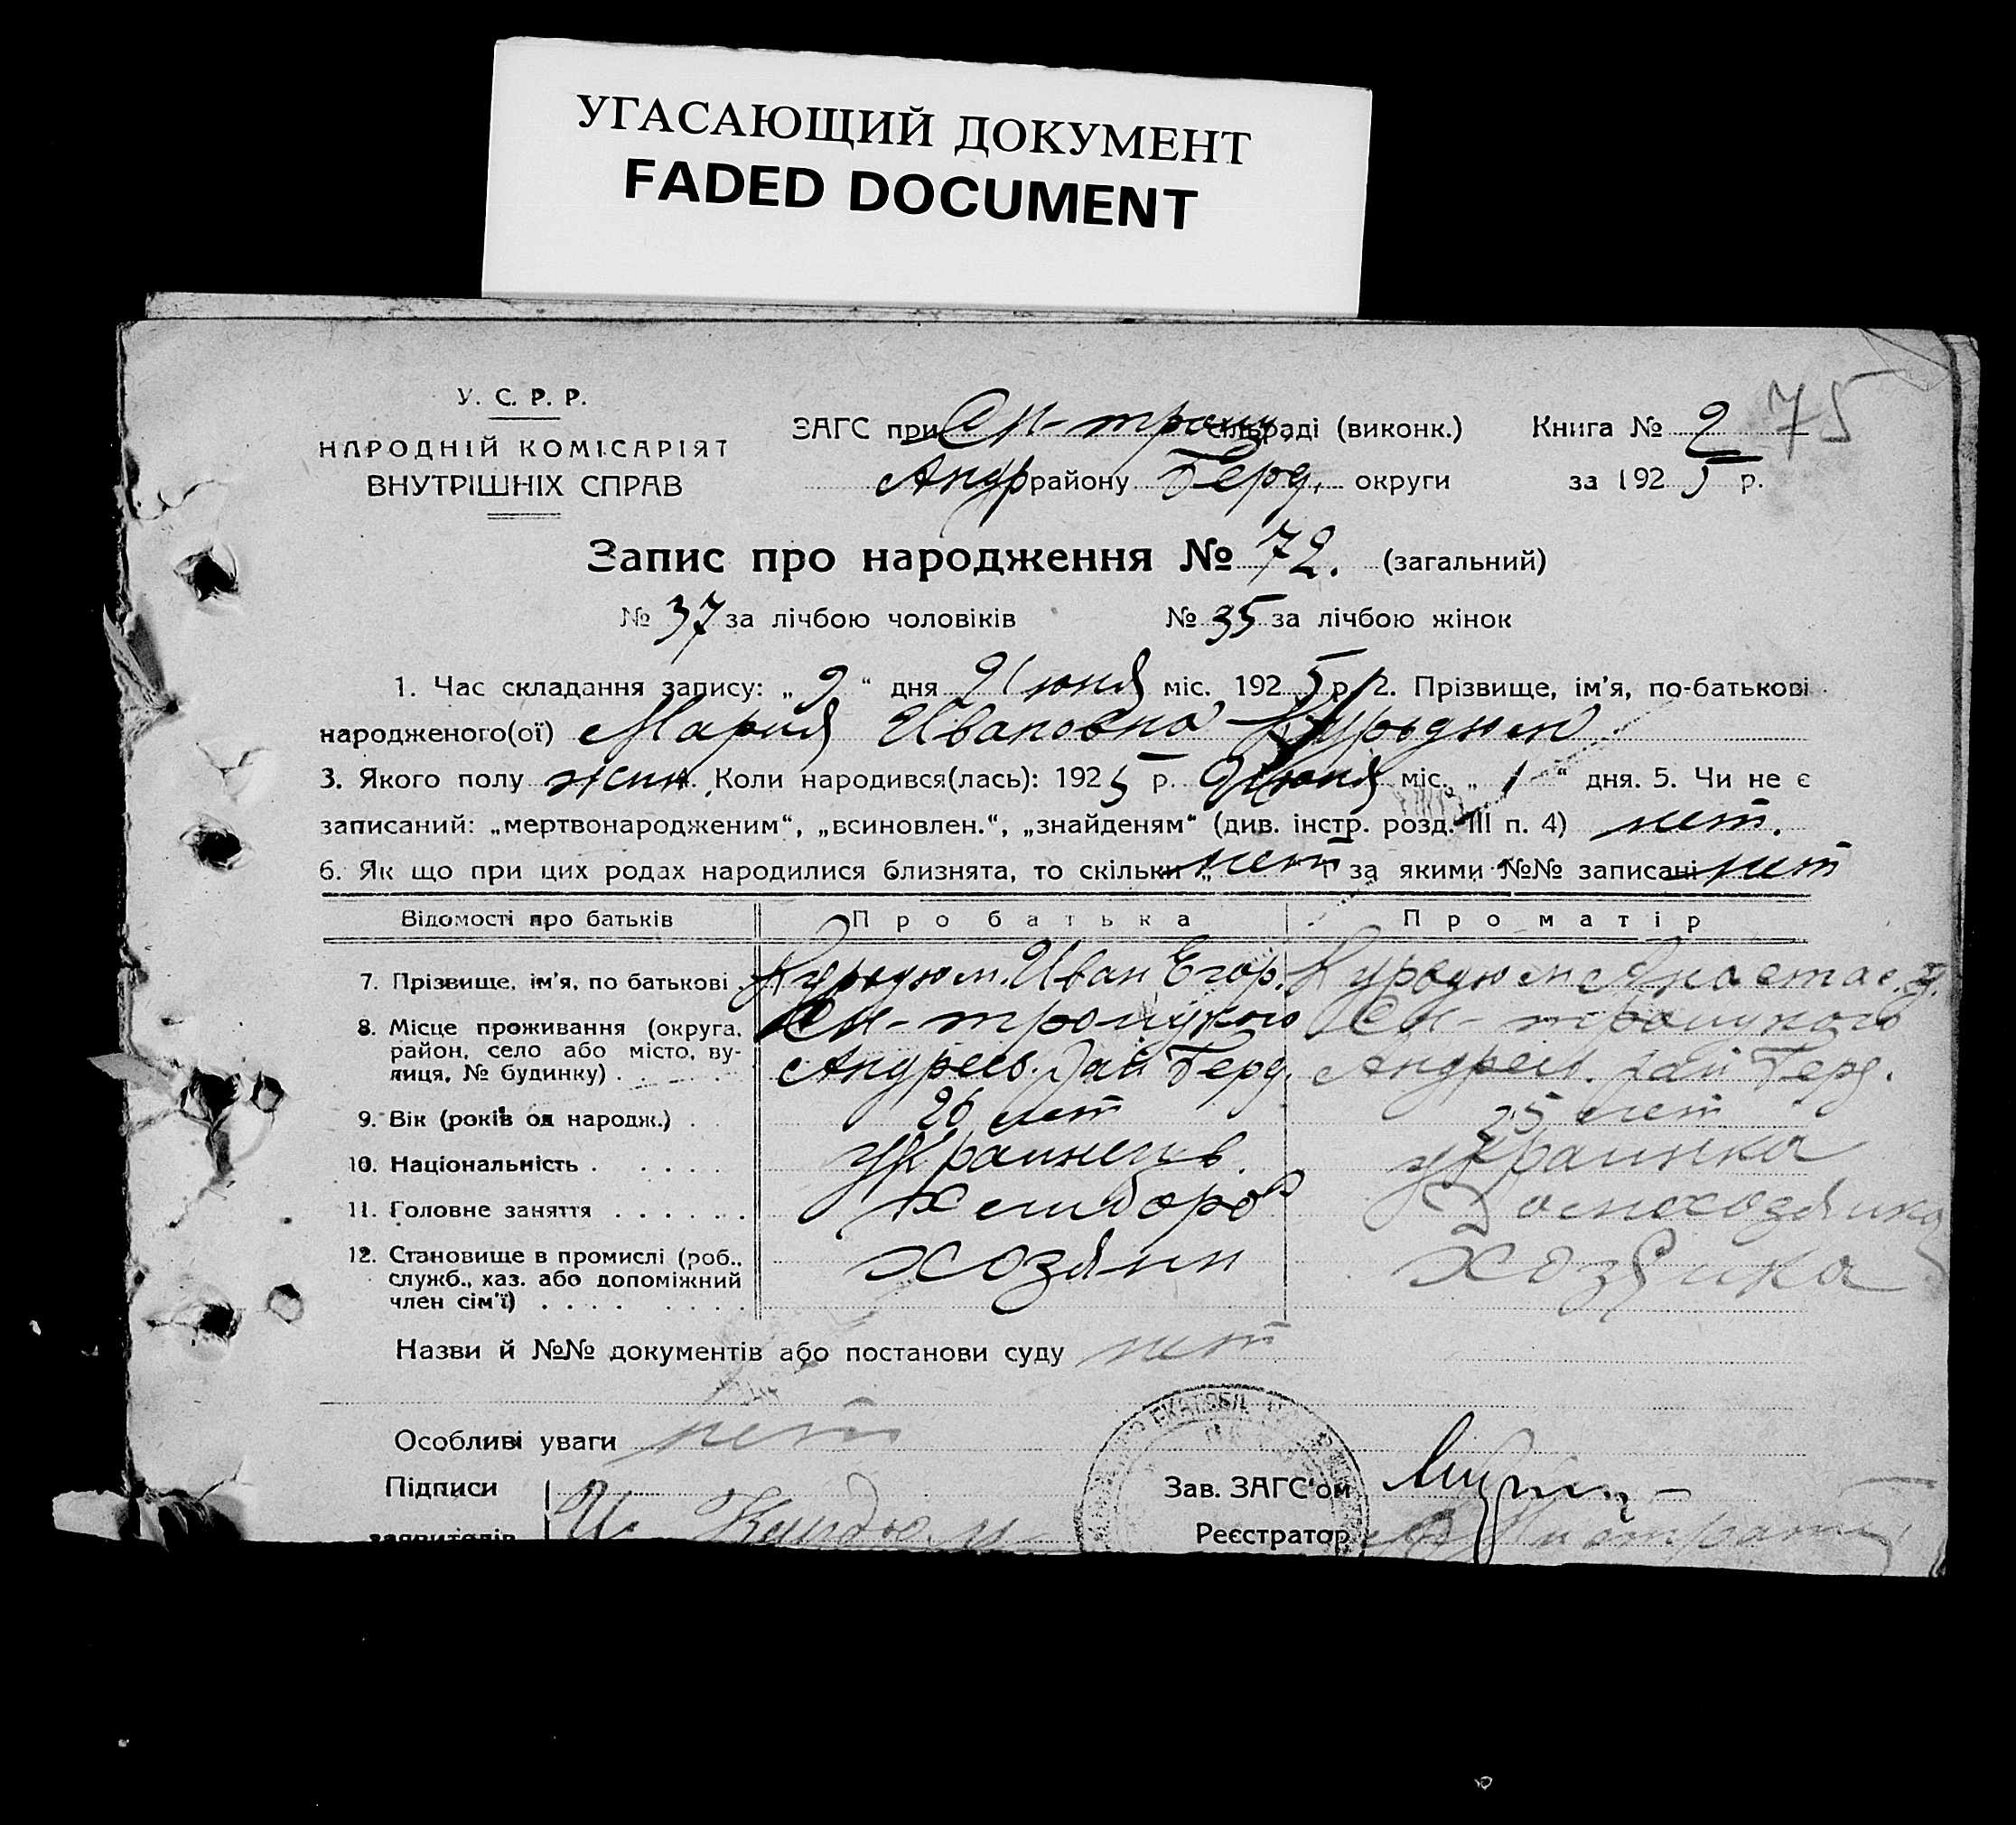 УГАСАЮЩИЙ ДОКУМЕНТ
FADED DOCUMENT
У. С. Р. Р.
НАРОДНІЙ КОМІСАРІЯТ
ВНУТРІШНІХ СПРАВ
ЗАГС при Сн-троиц. сільраді (виконк.)
Андр району Берд. округи
Книга № 2 75
за 1925 р.
Запис про народження № 72. (загальний)
№ 37 за лічбою чоловіків № 35 за лічбою жінок
1. Час складання запису: „ 9 “ дня Июня міс. 1925 р. 2. Прізвище, ім’я, по-батькові
народженого(ої) Мария Ивановна
3. Якого полу жин. Коли народився(лась): 1925 р. Июня міс. „ 1 “ дня. 5. Чи не є
записаний: „мертвонародженим“, „всиновлен.“, „знайденям“ (див. інстр. розд. III п. 4) нет.
6. Як що при цих родах народилися близнята, то скільки „ нет і за якими №№ записані нет
Відомості про батьків Про батька Про матір
7. Прізвище, ім’я, по батькові . Иван Егор.
8. Місце проживання (округа, район, село або місто, вулиця, № будинку) . Андреев. рай Берд. Андреев. рай Берд.
9. Вік (років од народж.) . . 26 лет 25 лет
10. Національність . . . . . украинець. украинка
11. Головне заняття . . . . . . хлибороб Домохозяика
12. Становище в промислі (роб., служб., хаз. або допоміжний член сім’ї) . . . . хозяин Хозяика
Назви й №№ документів або постанови суду нет
Особливі уваги нет
Підписи
заявителів
Зав. ЗАГС‘ом
Реєстратор